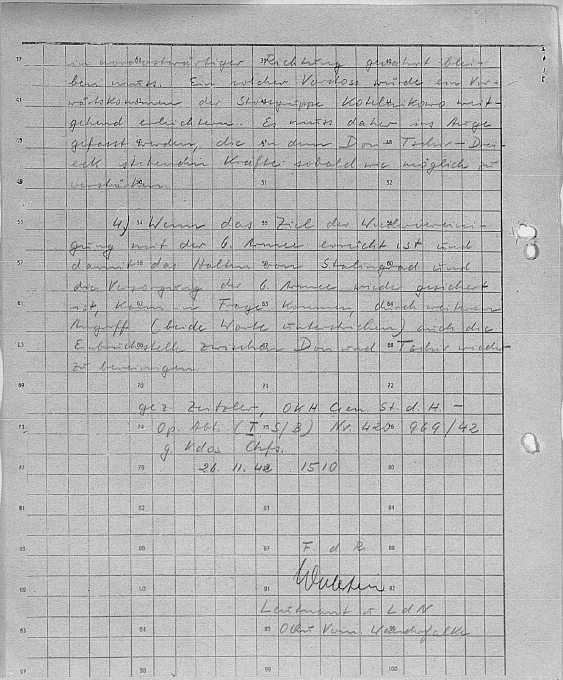 in nordostwärtiger Richtung geführt blei-
ben muss. Ein solcher Vorstoss würde ein Vor-
wärtskommen der Stossgruppe Kotelnikowo weit-
gehend erleichtern. Es muss daher ins Auge
gefasst werden, die in dem Don-Tschir-Drei-
eck stehenden Kräfte sobald wie möglich zu
verstärken.
4.) Wenn das Ziel der Wiederverein-
igung mit der 6. Armee erreicht ist und
damit das Halten von Stalingrad und
die Versorgung der 6. Armee wieder gesichert
ist, kann in Frage kommen, durch weiteren
Angriff (beide Worte unterstrichen) auch die
Einbruchstelle zwischen Don und Tschir wieder
zu bereinigen.
gez. Zeitzler, OKH Gen St. d. H. -
Op. Abt. (I S/B) Nr. 420 969/42
g. Kdos Chfs.
26. 11. 42 1510
F. d. R
Leutnant u LdN